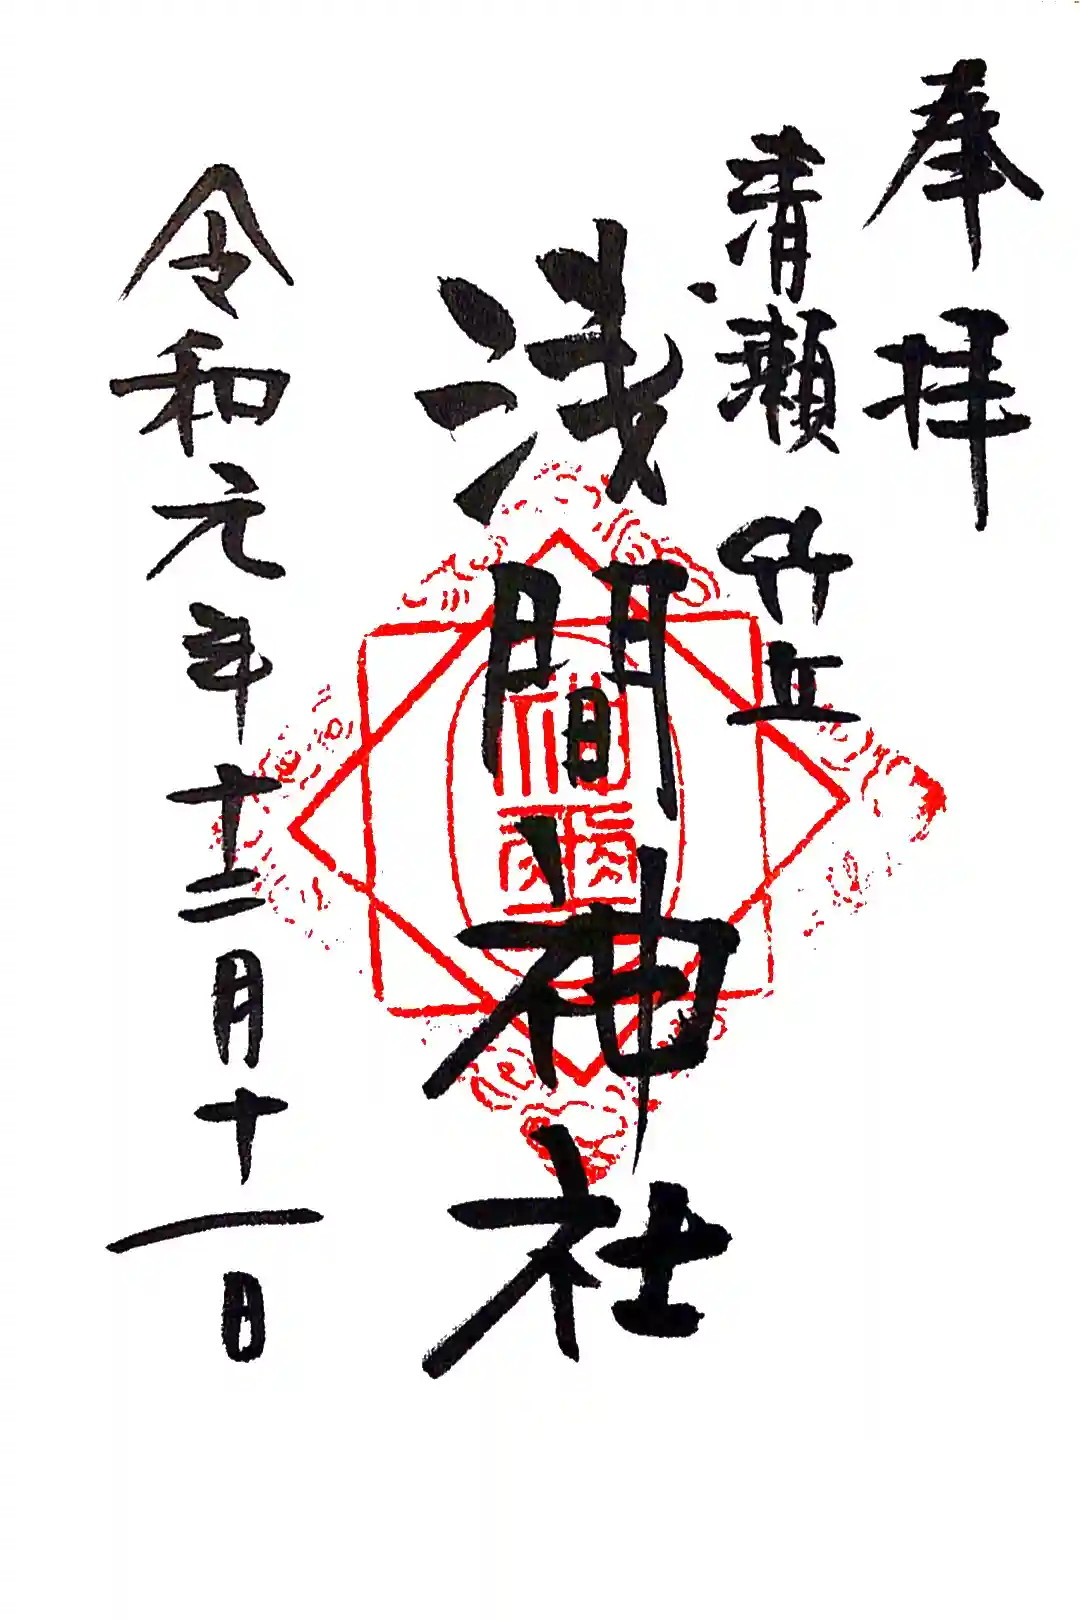 奉拝
清瀬 竹丘
浅間神社
令和元年十二月十一日